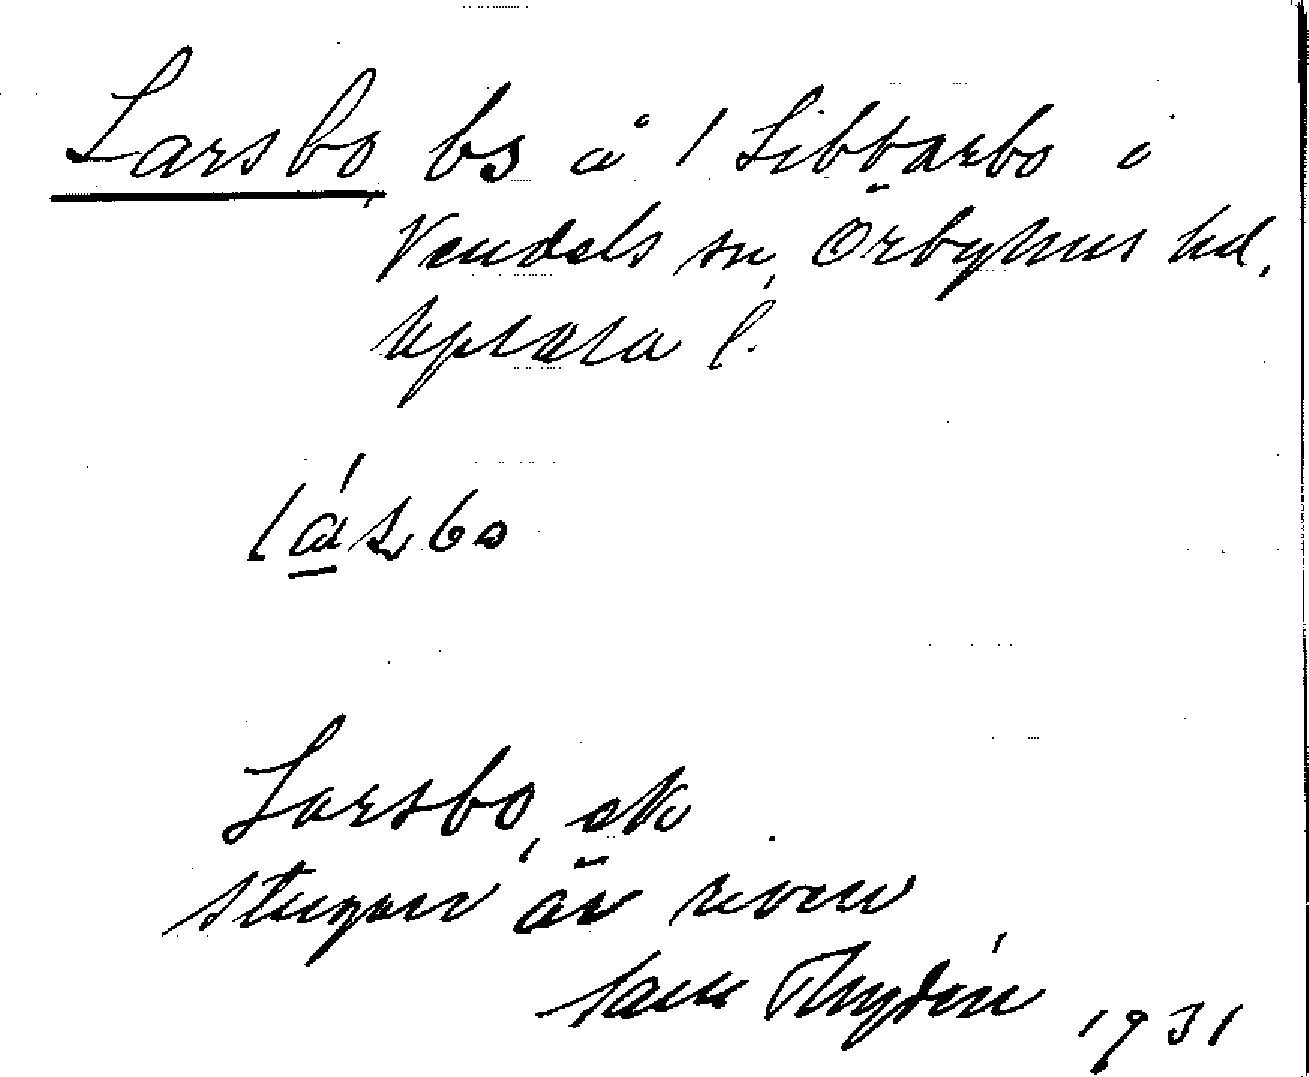 Larsbo, bs å 1 Libbarbo i
Vendels sn, Örbyhus hd,
Upsala l.
Larsbo, ek
stugan är riven
Rydén 1931